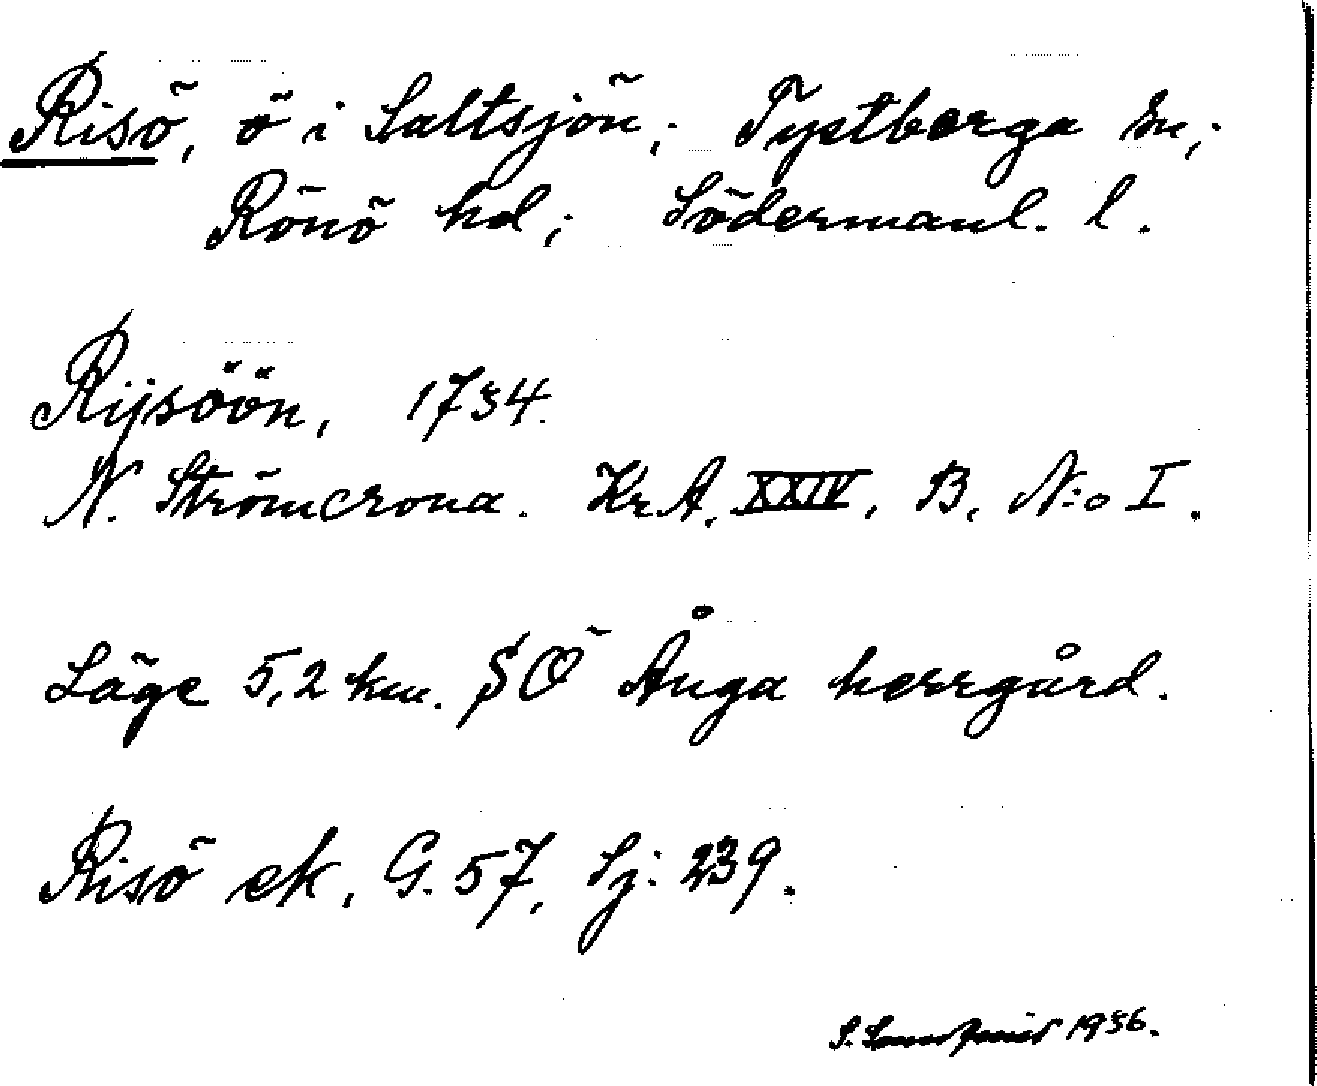 Risö, ö i Saltsjön; Tystberga sn;
Rönö hd; Södermanl. l.
Rijsöön, 1734.
N. Strömcrona. Kr.A. XXIV, B, N:o I.
Läge 5,2 km. SÖ Ånga herrgård.
Risö ek, G. 57, Sj: 239.
S. 1936.